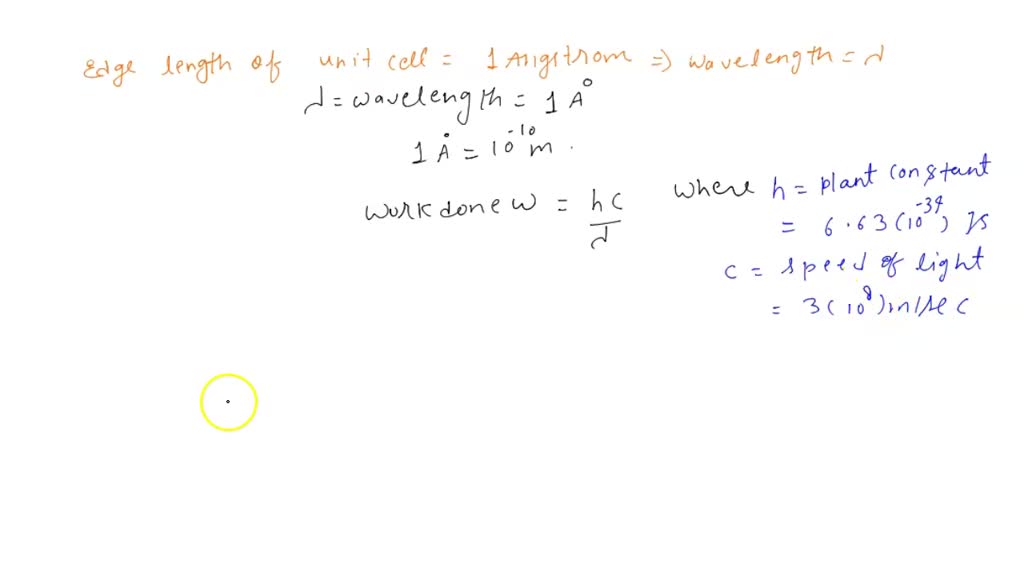 Edge length of unit cell = 1 Angstrom => wavelength = λ
λ = wavelength = 1 A°
1 Å = 10^-10 m .
work done w = hc/λ
where h = plant constant
= 6.63(10^-34) Js
c = speed of light
= 3(10^8)m/sec